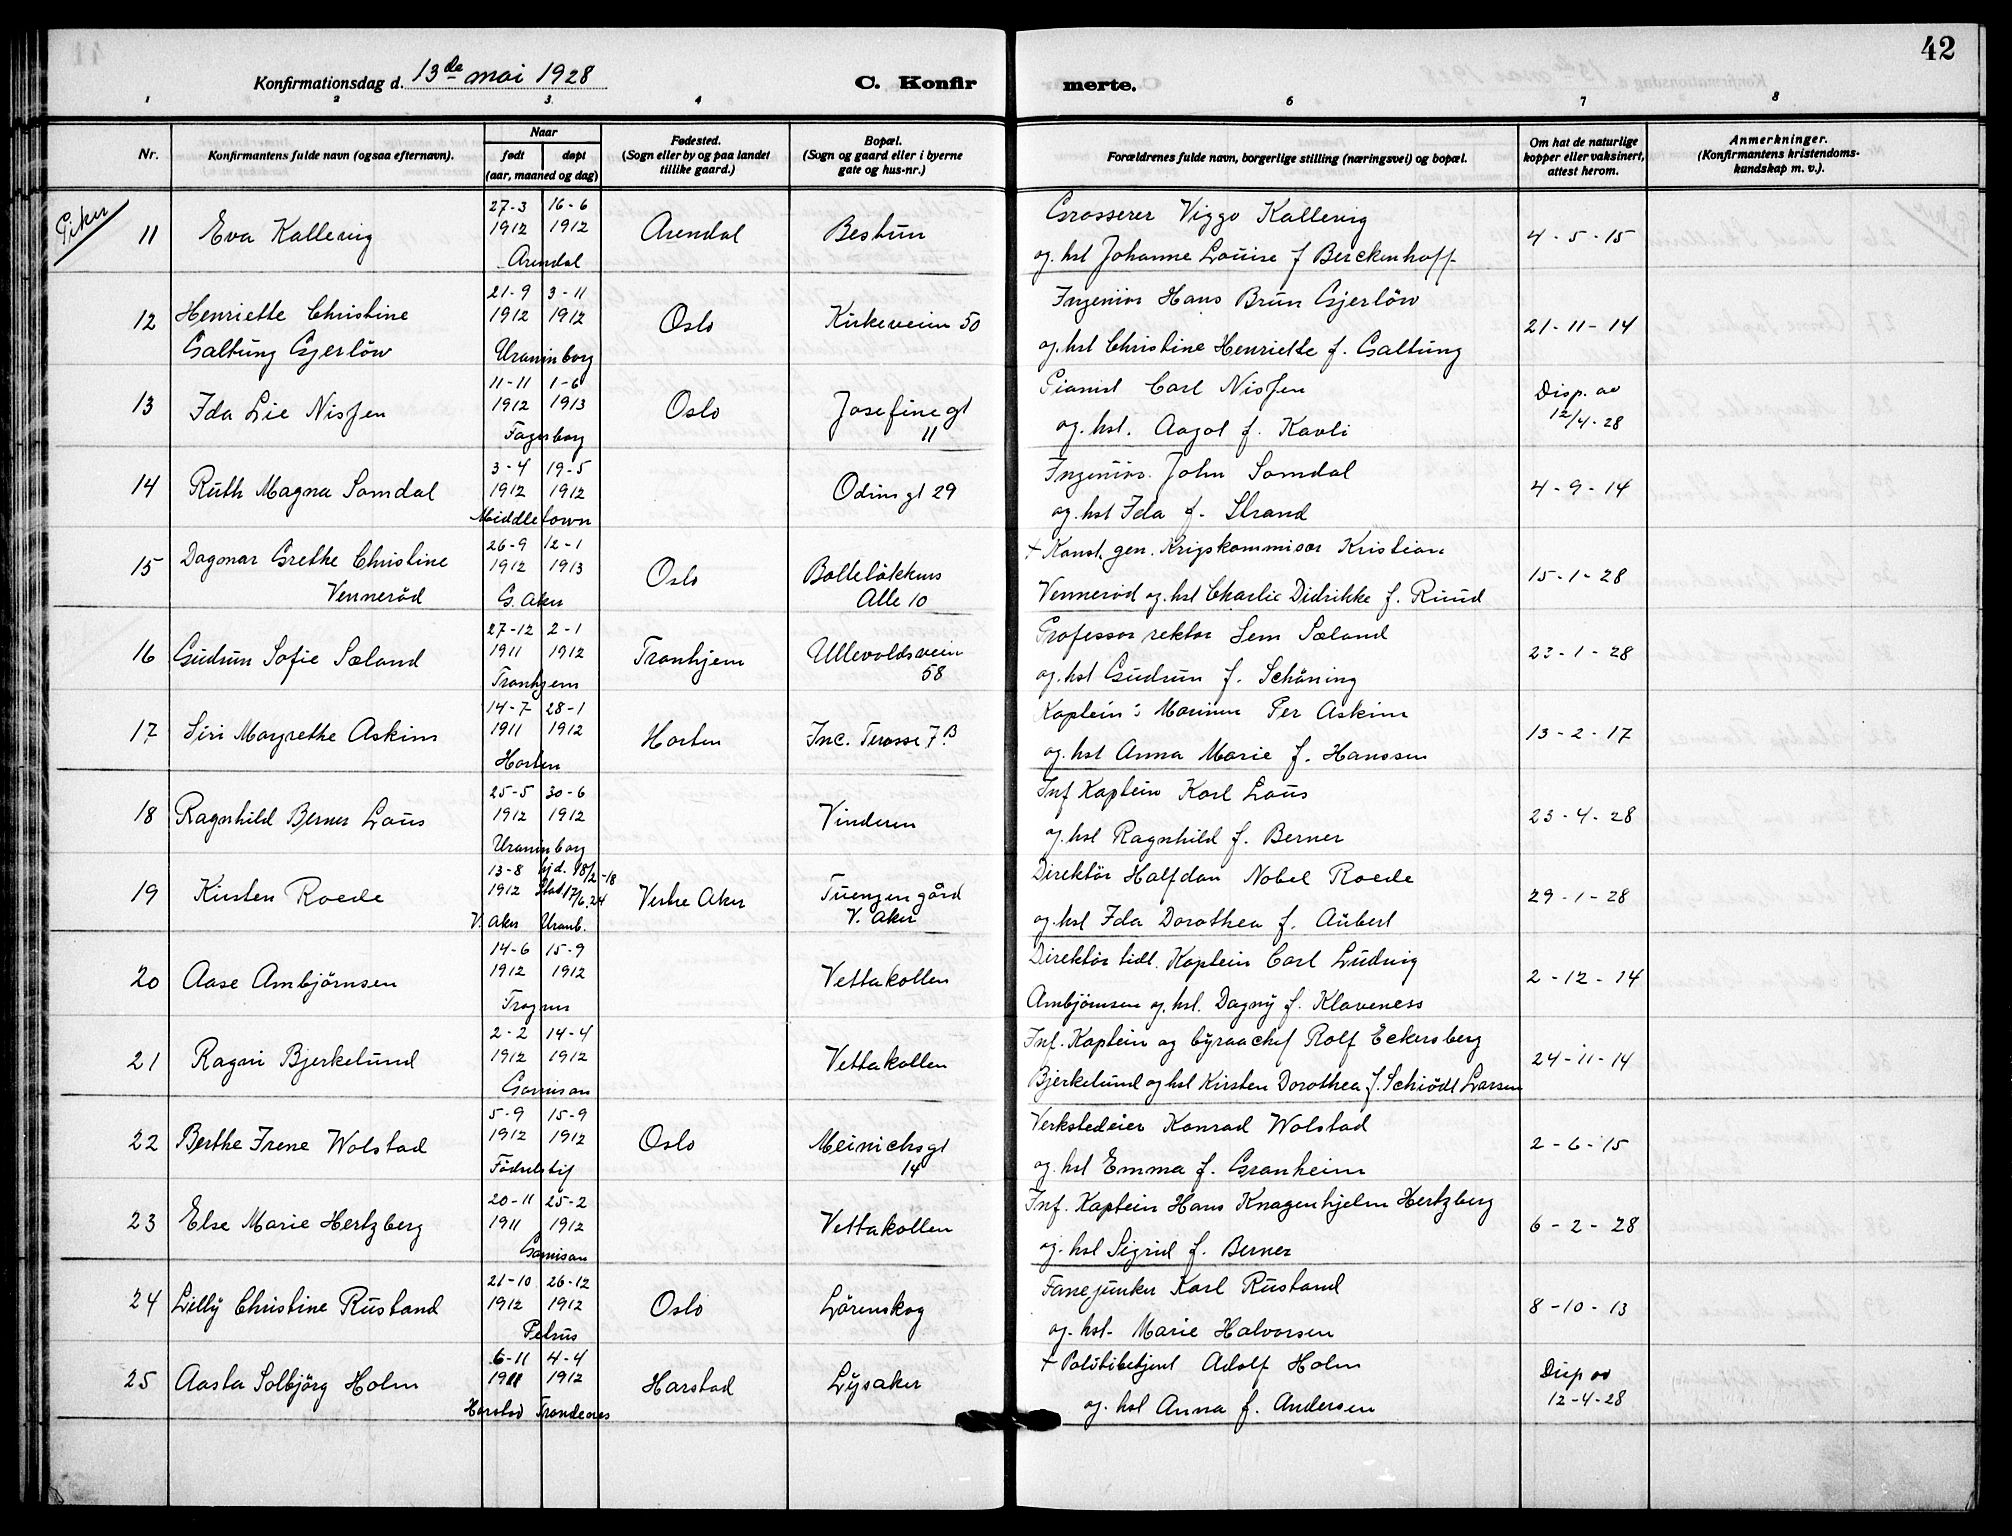 42
Konfirmationsdag d. 13de mai 1928
C. Konfirmerte.
1 2 3. 4 6 7 8
Nr.
Konfirmantens fulde navn (ogsaa efternavn).
Naar
født døpt
(aar, maaned og dag)
Fødested.
(Sogn eller by og paa landet
tillike gaard.)
Bopæl.
(Sogn og gaard eller i byerne
gate og hus-nr.)
Forældrenes fulde navn, borgerlige stilling (næringsvei) og bopæl.
Om hat de naturlige
kopper eller vaksinert,
attest herom.
Anmerkninger.
(Konfirmantens kristendoms-
kundskap m. v.).
Piker
27-3 16-6 Grosserer Viggo Kallevig
11 Eva Kallevig 1912 1912 Arendal Bestun 4-5-15
Arendal og hst Johanne Louise f Berckenhoff
21-9 3-11 Ingeniør Hans Brun Gjerløw
12 Henriette Christine 1912 1912 Oslo Kirkeveien 50 21-11-14
Galtung Gjerløw Uranienborg og hst Christine Henriette f. Galtung
11-11 1-6 Pianist Carl Nissen Disp. av
13 Ida Lie Nissen 1912 1913 Oslo Josefinegt 12/4-28
Fagerborg 11 og hst. Aagot f. Kavli
3-4 19-5 Ingeniør John Somdal
14 Ruth Magna Somdal 1912 1912 Odinsgt 29 4-9-14
Middletown og hst Ida f. Strand
26-9 12-1 + Konst. gen. Krigskommisær Kristian
15 Dagmar Grethe Christine 1912 1913 Oslo Bolteløkkens 15-1-28
Vennerød G. Aker Alle 10 Vennerød og hst Charlie Didrikke f. Ruud
27-12 2-1 Professor rektor Sem Sæland
16 Gudrun Sofie Sæland 1911 1912 Tronhjem Ullevoldsveien 23-1-28
Tronhjem 58 og hst Gudrun f. Schöning
14-7 28-1 Kaptein i Marinen Per Askim
17 Siri Margrethe Askim 1911 1912 Horten Inc. Terasse 7B 13-2-17
Horten og hst Anna Marie f. Hanssen
25-5 30-6 Inf Kaptein Karl Laus
18 Ragnhild Berner Laus 1912 1912 Vinderen 23-4-28
Uranienborg og hst Ragnhild f. Berner
13-8 hjd. 18/2-18 Direktör Halfdan Nobel Roede
19 Kirsten Roede 1912 Stad 17/6.24 Vestre Aker Tuengen gård 29-1-28
V. Aker Uranb. V. Aker og hst Ida Dorothea f. Aubert
14-6 15-9 Direktör tidl. Kaptein Carl Ludvig
20 Aase Ambjørnsen 1912 1912 Vettakollen 2-12-14
Frogner Ambjørnsen og hst. Dagny f. Klaveness
2-2 14-4 Inf. Kaptein og byraachef Rolf Eckersberg
21 Ragni Bjerkelund 1912 1912 Vettakollen 24-11-14
Garnison Bjerkelund og hst Kirsten Dorothea f. Schiødt Larsen
5-9 15-9 Verkstedeier Konrad Wolstad
22 Berthe Irene Wolstad 1912 1912 Oslo Meinichsgt 2-6-15
Fødselstif 14 og hst Emma f. Granheim
20-11 25-2 Inf. Kaptein Hans Knagenhjelm Hertzberg
23 Else Marie Hertzberg 1911 1912 Vettakollen 6-2-28
Garnison og hst Sigrid f. Berner
21-10 26-12 Fanejunker Karl Rustand
24 Lilly Christine Rustand 1912 1912 Oslo Lørenskog 8-10-13
Petrus og hst. Marie Halvorsen
6-11 4-4 + Politibetjent Adolf Holm Disp av
25 Aasta Solbjørg Holm 1911 1912 Harstad Lysaker 12-4-28
Harstad Trondenes og hst Anna f. Andersen